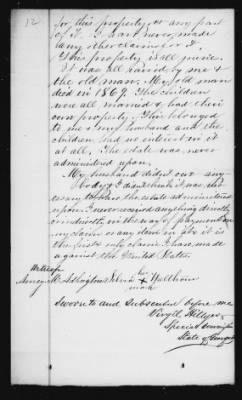 52
for this property or any part
of it. I have never made
any other claim for it.
This property is all mine.
It was all raised by me &
the old man. My old man
died in 1869. The children
were all married & had their
own property. This belonged
to me & my husband and the
children had no interest in it
at all. The estate was never
administered upon.
My husband did not owe any
body & I didn't think it was
to have the estate administered
upon. I never received anything directly
or indirectly in the way of payment on
my claim or any item in it & it is
the first & only claim I have made
against the United States.
her
+
mark
Sworn to and Subscribed before me
Virgil Hillyer
Special Commissioner
State of Georgia